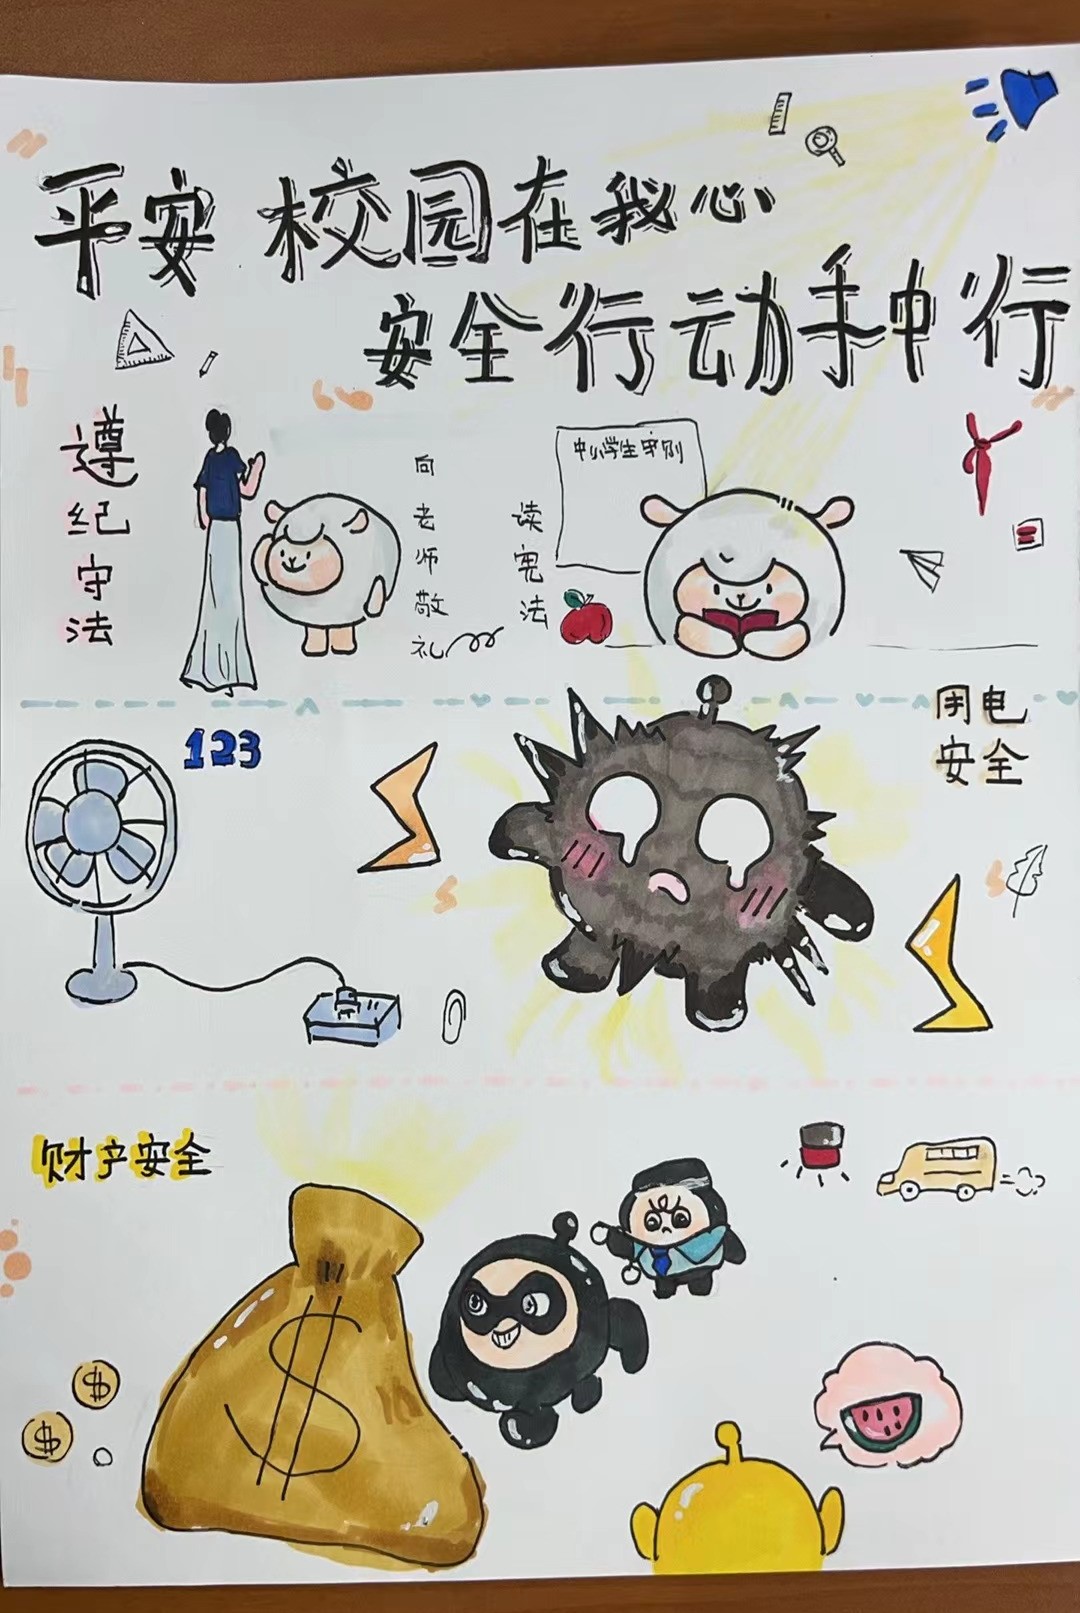 平安校园在我心
安全行动手中行
遵纪守法
向老师敬礼
读宪法
中小学生守则
123
用电
安全
财产安全
$
$
$